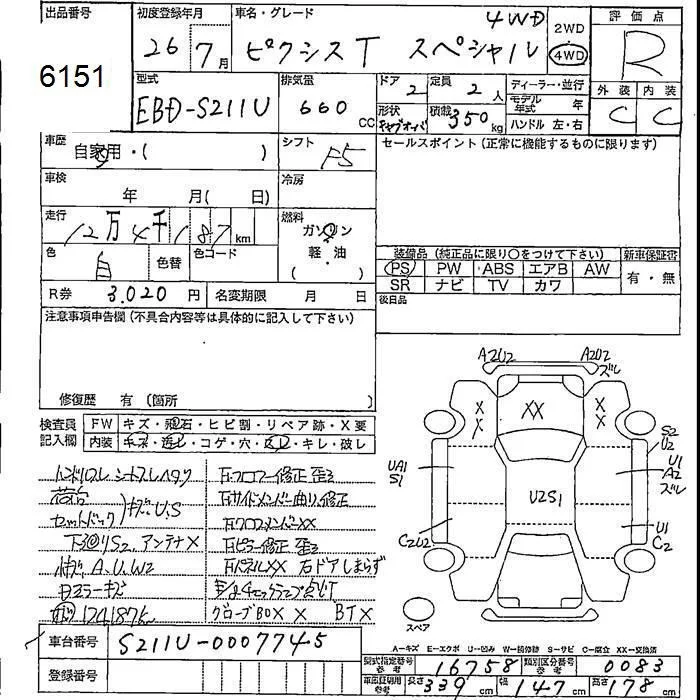 出品番号
6151
初度登録年月
26 7月
車名・グレード
ピクシスT スペシャル 4WD
2WD
4WD
評価点
R
外装 内装
C C
型式
EBD-S211U
排気量
660 CC
ドア 2
定員 2 人
形状 キャブオーバ
積載 350 kg
ディーラー・並行
モデル年式 年
ハンドル 左・右
車歴
自家用・( )
シフト
F5
セールスポイント(正常に機能するものに限ります)
車検
年 月( 日)
冷房
走行
12万4千187 km
燃料
ガソリン
軽・油
( )
色 白
色替
色コード
R券 3,020 円
名変期限 月 日
装備品(純正品に限り○をつけて下さい)
新車保証書
PS PW ABS エアB AW
SR ナビ TV カワ
有・無
後日品
注意事項申告欄(不具合内容等は具体的に記入して下さい)
修復歴 有(箇所 )
検査員記入欄
FW キズ・飛石・ヒビ割・リペア跡・X要
内装 キズ・汚れ・コゲ・穴・スレ・キレ・破レ
ハンドルスレ シートスレヘタリ
荷台
セットバック
キズ・U,S
下廻りS2, アンテナX
A,U,W2
124187k
右ドアしまらず
グローブBOX X BTX
A2U2
A2U2
ズレ
XX
XX
XX
UA1
S1
S2
U2
U1
A2
ズレ
U2S1
C2U2
U1
C2
スペア
A-キズ E-エクボ U-凹み W-補修跡 S-サビ C-腐食 XX-交換済
車台番号 S211U-0007745
登録番号
型式指定番号 参考 16758
類別区分番号 参考 0083
車庫証明用 参考 長さ 339 cm 幅 147 cm 高さ 178 cm